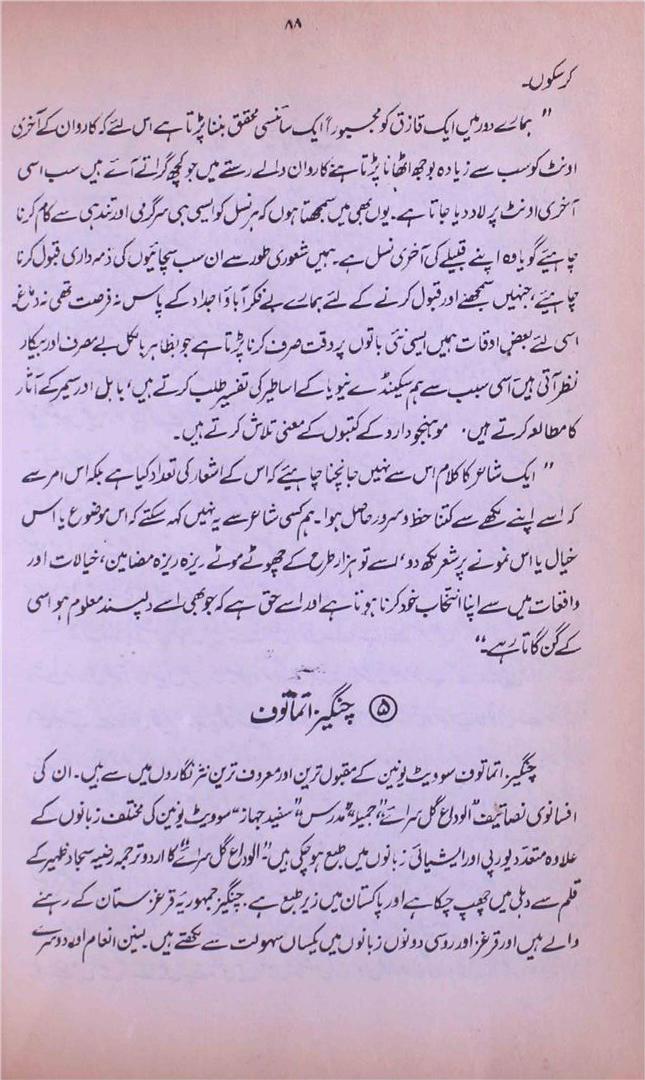 ۸۸
کر سکوں۔
" ہمارے دور میں ایک قازق کو مجبوراً ایک سائنسی محقق بننا پڑتا ہے اس لئے کہ کارواں کے آخری
اونٹ کو سب سے زیادہ بوجھ اٹھانا پڑتا ہے کارواں والے رستے میں جو کچھ گراتے آئے ہیں سب اسی
آخری اونٹ پر لاد دیا جاتا ہے۔ یوں بھی میں سمجھتا ہوں کہ ہر نسل کو ایسی ہی سرگرمی اور تندہی سے کام کرنا
چاہیئے گویا وہ اپنے قبیلے کی آخری نسل ہے۔ ہمیں شعوری طور سے ان سب سچائیوں کی ذمہ داری قبول کرنا
چاہیئے، جنہیں سمجھنے اور قبول کرنے کے لئے ہمارے بے فکر آباؤ اجداد کے پاس نہ فرصت تھی نہ دماغ۔
اسی لئے بعض اوقات ہمیں ایسی نئی باتوں پر وقت صرف کرنا پڑتا ہے جو بظاہر بالکل بے مصرف اور بیکار
نظر آتی ہیں اسی سبب سے ہم سکینڈے نیویا کے اساطیر کی تفسیر طلب کرتے ہیں، بابل اور سمیر کے آثار
کا مطالعہ کرتے ہیں، موہنجو دارو کے کتبوں کے معنی تلاش کرتے ہیں۔
" ایک شاعر کا کلام اس سے نہیں جانچنا چاہیئے کہ اس کے اشعار کی تعداد کیا ہے بلکہ اس امر سے
کہ اسے اپنے لکھے سے کتنا حظ و سرور حاصل ہوا۔ ہم کسی شاعر سے یہ نہیں کہہ سکتے کہ اس موضوع یا اس
خیال یا اس نمونے پر شعر لکھ دو، اسے تو ہزار طرح کے چھوٹے موٹے ریزہ ریزہ مضامین، خیالات اور
واقعات میں سے اپنا انتخاب خود کرنا ہوتا ہے اور اسے حق ہے کہ جو بھی اسے دلپسند معلوم ہو اسی
کے گن گاتا رہے۔"
۵ چنگیز اتماتوف
چنگیز اتماتوف سوویٹ یونین کے مقبول ترین اور معروف ترین نثر نگاروں میں سے ہیں۔ ان کی
افسانوی تصانیف "الوداع گل سرائے"، "جمیلہ"، "مدرس"، "سفید جہاز" سوویٹ یونین کی مختلف زبانوں کے
علاوہ متعدد یورپی اور ایشیائی زبانوں میں طبع ہو چکی ہیں۔ "الوداع گل سرائے" کا اردو ترجمہ رضیہ سجاد ظہیر کے
قلم سے دہلی میں چھپ چکا ہے اور پاکستان میں زیر طبع ہے۔ چنگیز جمہوریہ قرغزستان کے رہنے
والے ہیں اور قرغز اور روسی دونوں زبانوں میں یکساں سہولت سے لکھتے ہیں۔ لینن انعام اور دوسرے